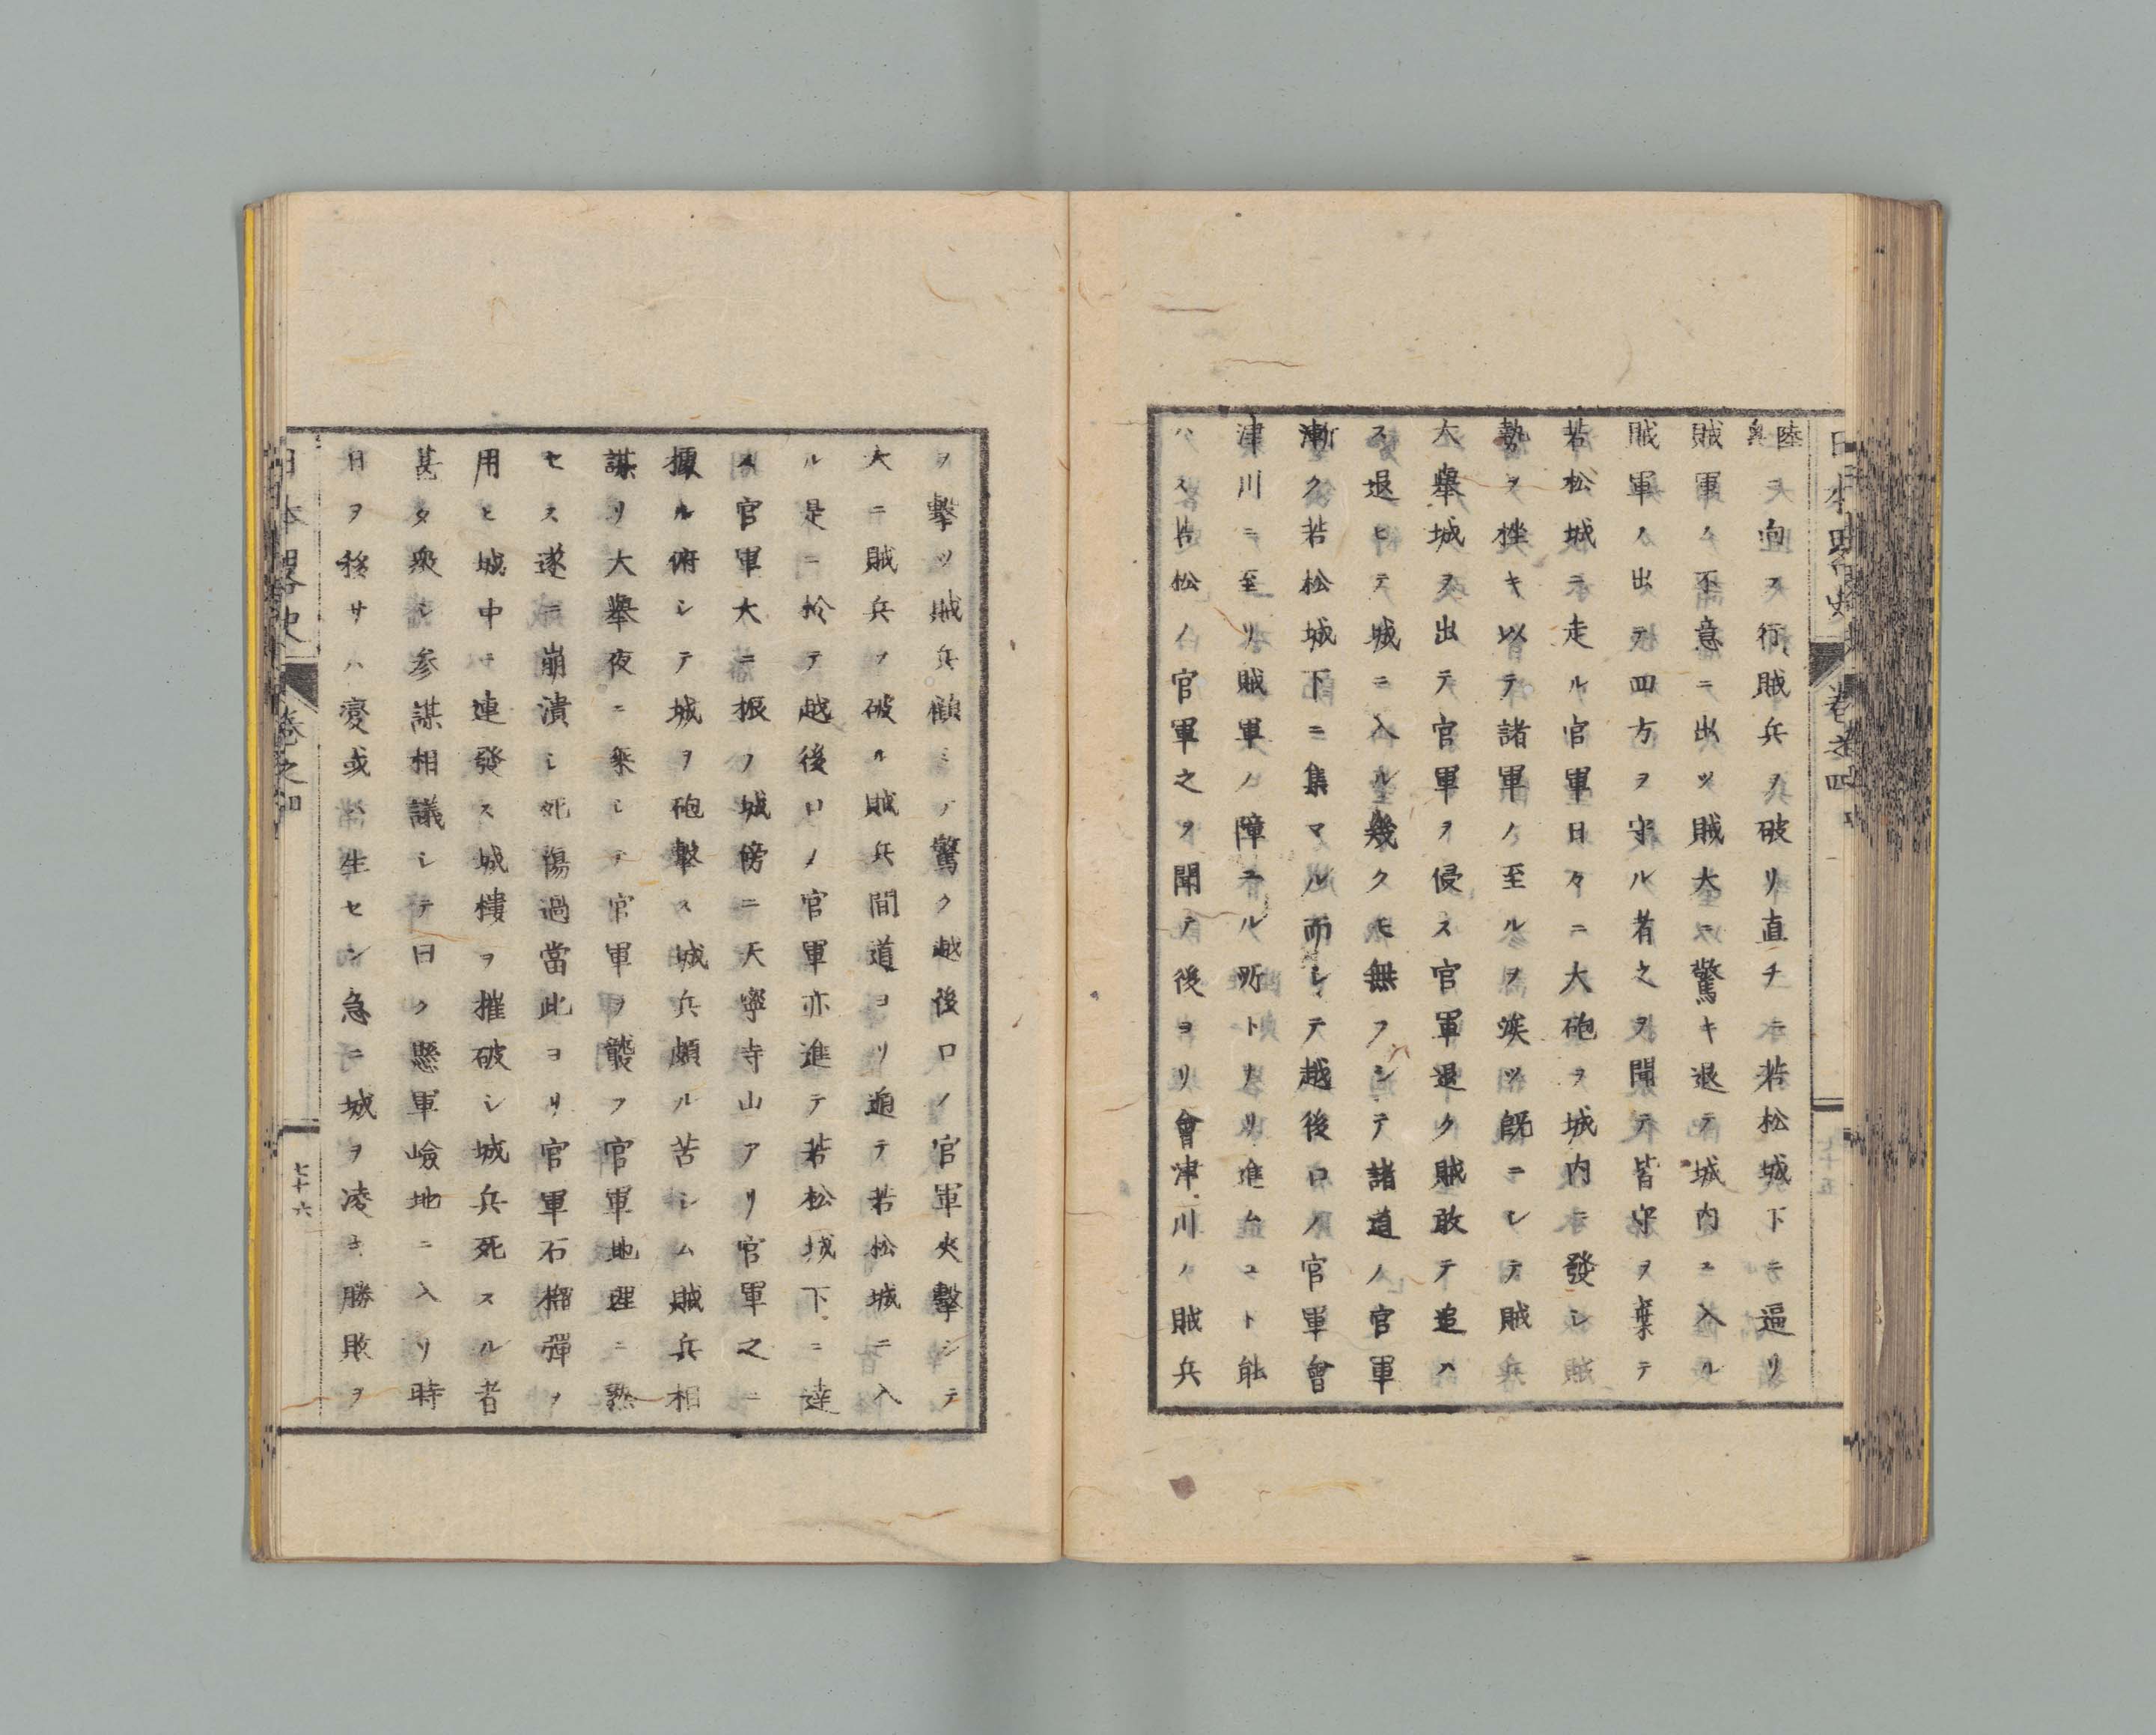 日本略史 卷之四
陸奥ニ向ス行賊兵ヲ破リ直チニ若松城下ニ逼リ
賊軍ノ不意ニ出ツ賊大ニ驚キ退テ城内ニ入ル
賊軍ノ出テ四方ヲ守ル者之ヲ聞テ皆守ヲ棄テ
若松城ニ走ル官軍日々ニ大砲ヲ城内ニ發シ
勢ヲ挫キ以テ諸軍ノ至ルヲ竢ツ既ニシテ賊兵
大擧城ヲ出テ官軍ヲ侵ス官軍退ク賊敢テ追ハ
ス退ヒテ城ニ入ル幾クモ無フシテ諸道ノ官軍
漸ク若松城下ニ集マル而シテ越後口ノ官軍會
津川ニ至リ賊軍ノ障ユル所トナリ進ムコト能
ハス若松ノ官軍之ヲ聞テ後ヨリ會津川ノ賊兵
ヲ擊ツ賊兵顧ミテ驚ク越後口ノ官軍夾擊シテ
大ニ賊兵ヲ破ル賊兵間道ヨリ遁テ若松城ニ入
ル是ニ於テ越後口ノ官軍亦進テ若松城下ニ達
ス官軍大ニ振フ城傍ニ天寧寺山アリ官軍之ニ
據ル俯シテ城ヲ砲擊ス城兵頗ル苦シム賊兵相
謀リ大擧夜ニ乘シテ官軍ヲ襲フ官軍地理ニ熟
セス遂ニ崩潰シ死傷過當此ヨリ官軍石榴彈ヲ
用ヒ城中ニ連發ス城樓ヲ摧破シ城兵死スル者
甚タ衆シ參謀相議シテ曰ク懸軍嶮地ニ入リ時
日ヲ移サハ變或ハ生セン急ニ城ヲ凌キ勝敗ヲ
日本略史 卷之四 七十六